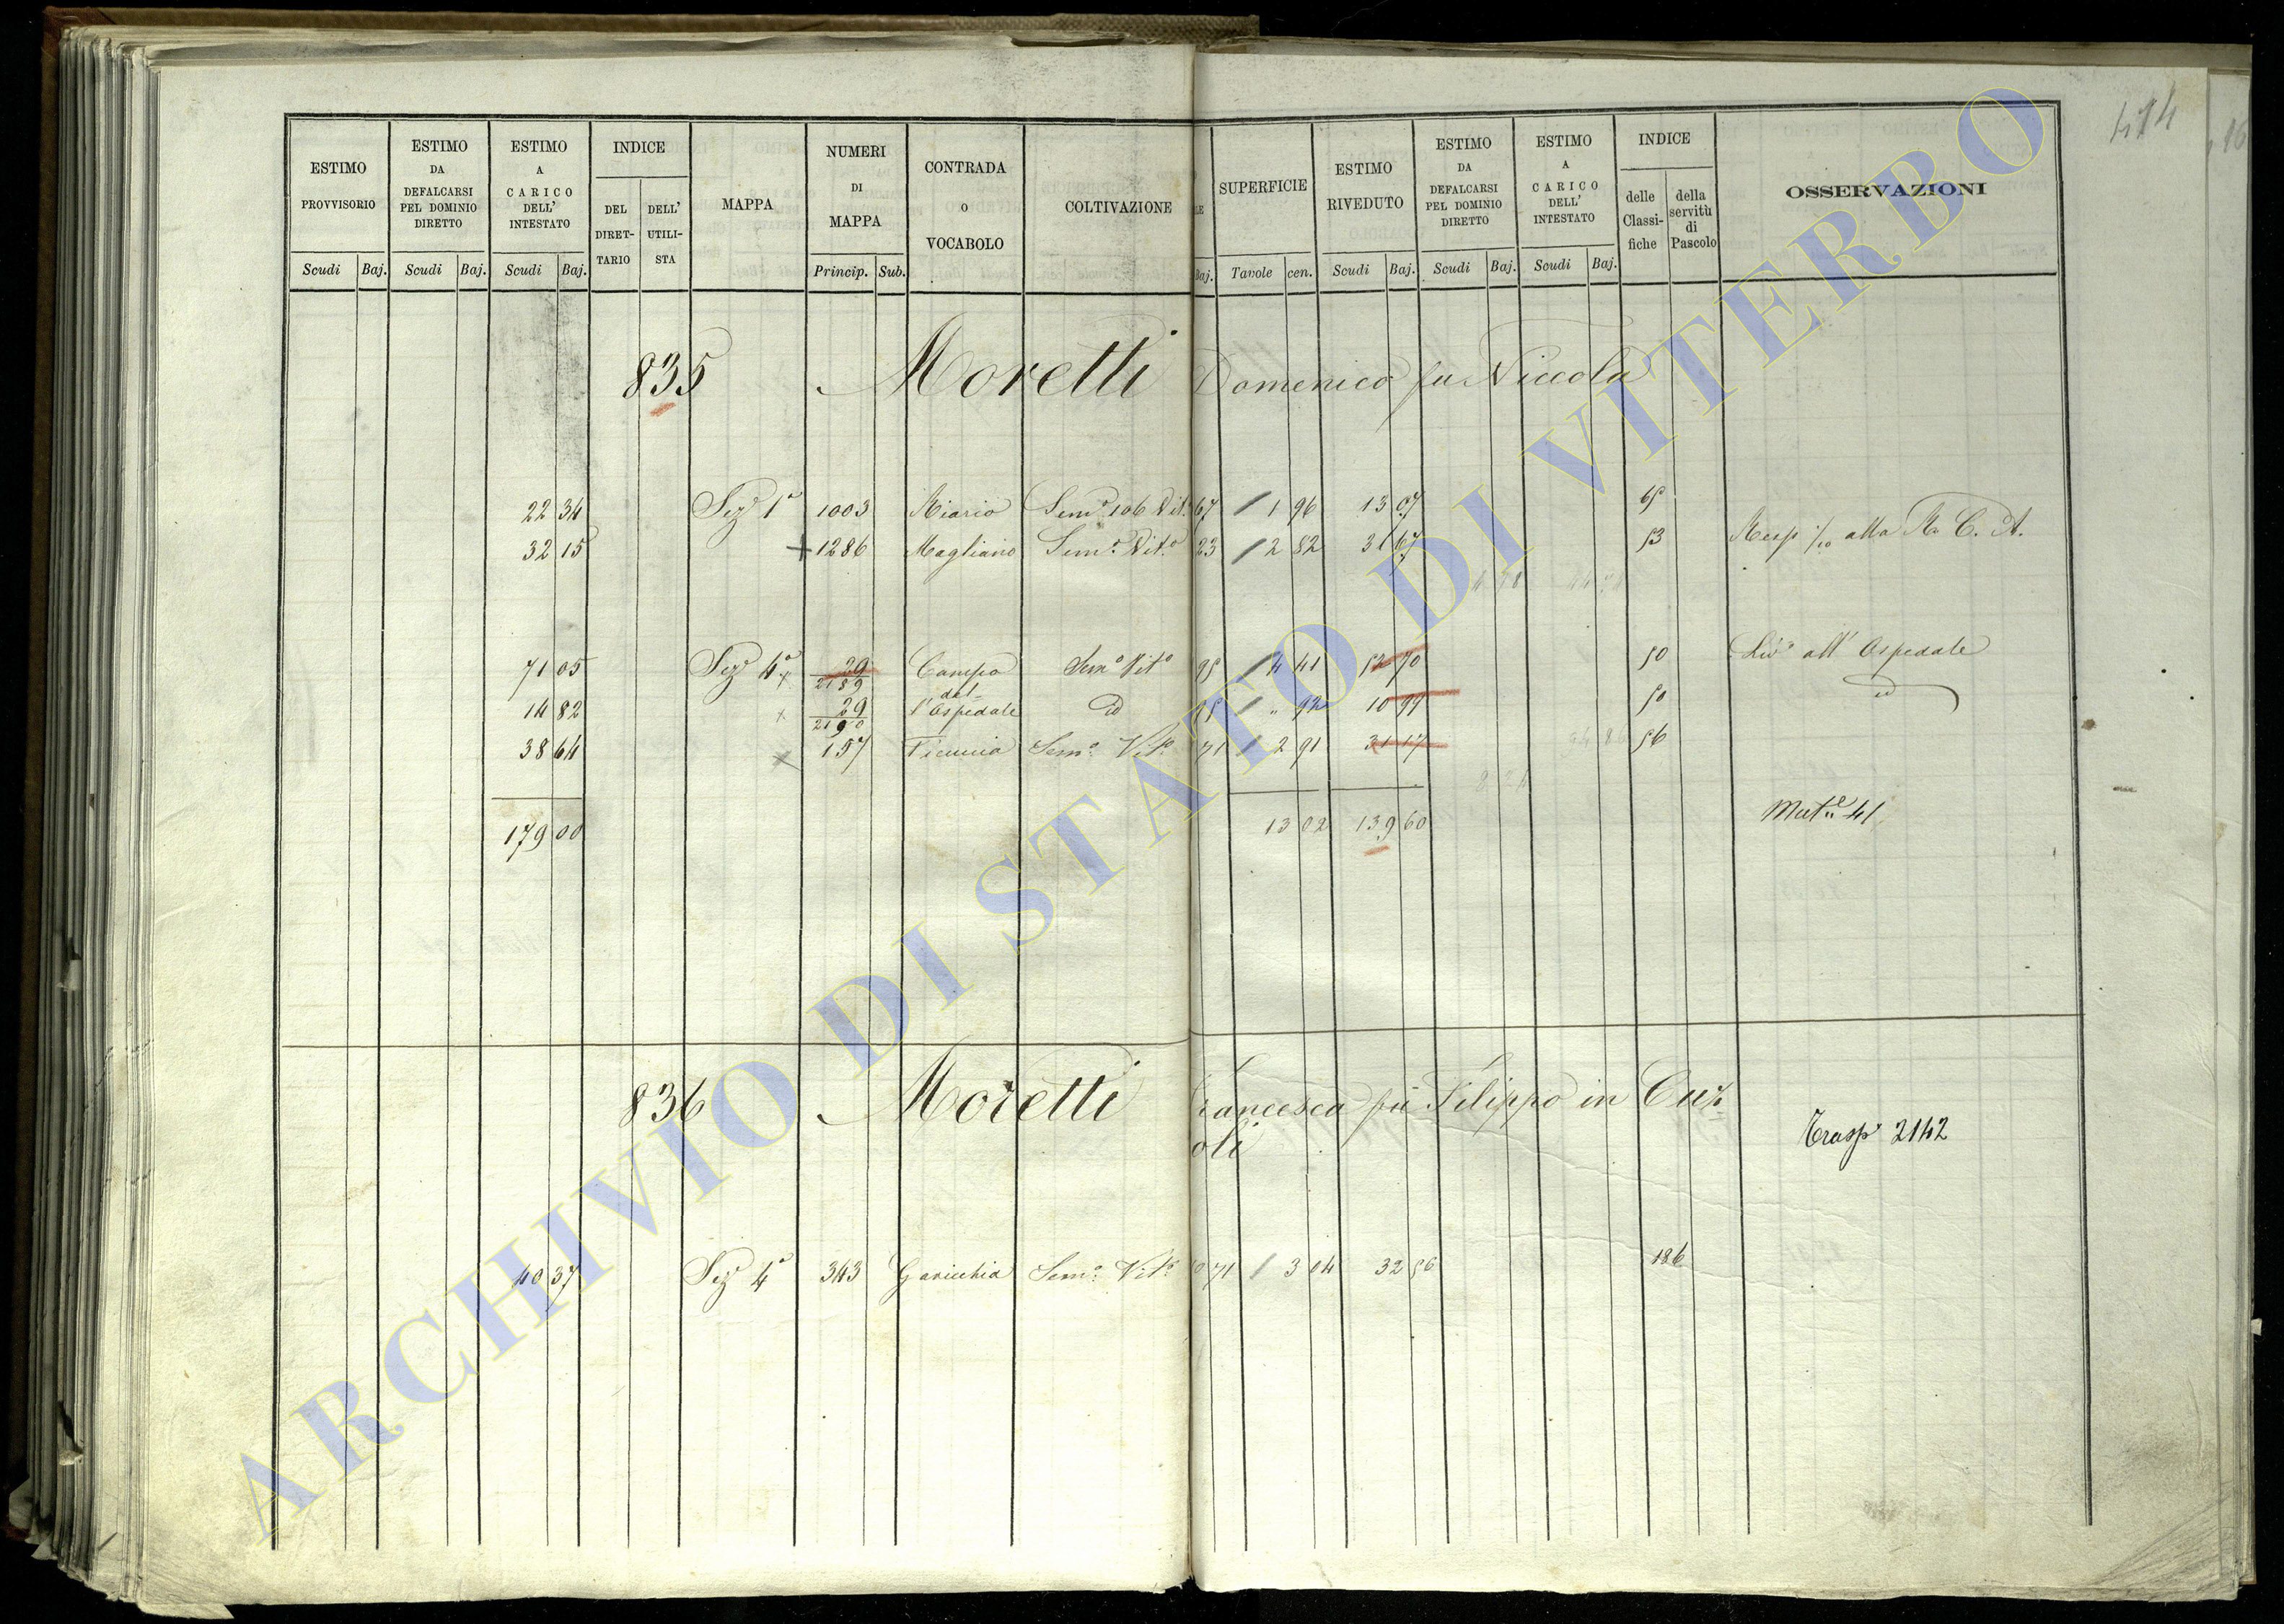 414
ESTIMO PROVVISORIO Scudi Baj.
ESTIMO DA DEFALCARSI PEL DOMINIO DIRETTO Scudi Baj.
ESTIMO A CARICO DELL' INTESTATO Scudi Baj.
INDICE DEL DIRET-TARIO DELL' UTILI-STA
MAPPA
NUMERI DI MAPPA Princip. Sub.
CONTRADA O VOCABOLO
COLTIVAZIONE
LE Baj.
SUPERFICIE Tavole cen.
ESTIMO RIVEDUTO Scudi Baj.
ESTIMO DA DEFALCARSI PEL DOMINIO DIRETTO Scudi Baj.
ESTIMO A CARICO DELL' INTESTATO Scudi Baj.
INDICE delle Classi-fiche della servitù di Pascolo
OSSERVAZIONI
835 Moretti Domenico fu Niccola
22 34 Sezᵉ 1ª 1003 Riario Semᵒ 106 Vit. 67 1 96 13 07 65
32 15 1286 Magliano Semᵒ Vitᵒ 23 2 82 31 67 53 Resp 1/10 alla R. C. A.
71 05 Sezᵉ 4ª 29/2189 Campo Semᵒ Vitᵒ 95 4 41 52 70 50 Livᵒ all' Ospedale
14 82 29/2190 del l'Ospedale id " 92 10 99 50 id
38 64 157 Semᵒ Vitᵒ 71 2 91 31 17 56
179 00 13 02 139 60 Mutᵉ 41
836 Moretti Francesca fu Filippo in Cur
oli
Trasp 2142
40 37 Sezᵉ 4ª 343 Garicchia Semᵒ Vitᵒ 71 3 04 32 56 186
ARCHIVIO DI STATO DI VITERBO